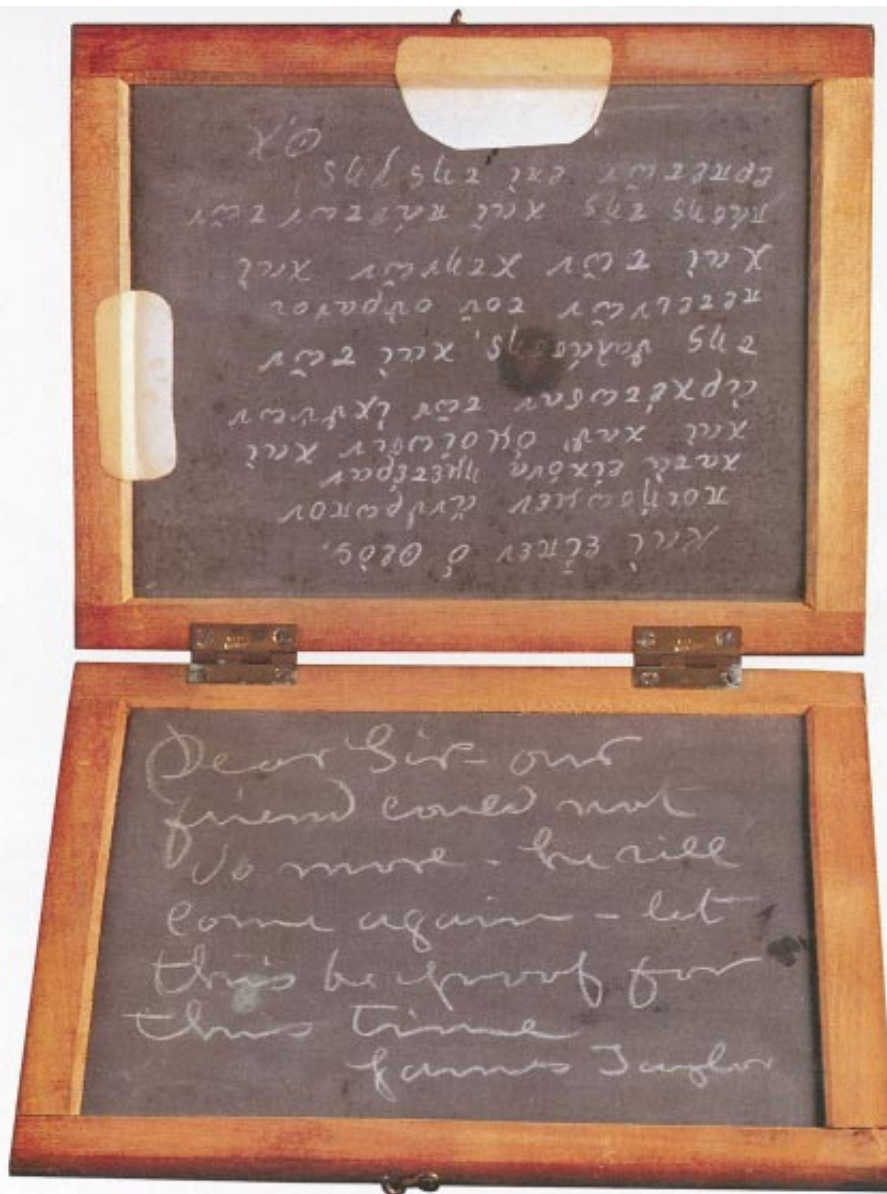 καὶ εἶπεν ὁ Θεὸς,
ποιήσωμεν ἄνθρωπον
κατὰ εἰκόνα ημετέραν
καὶ καθ' ομοίωσιν καὶ
ἀρχέτωσαν τῶν ἰχθύων
της θαλάσσης, καὶ τῶν
πετεινῶν τοῦ οὐρανου
καὶ τῶν κτηνῶν καὶ
πάσης της καὶ πάντων τῶν
ερπετῶν επὶ της γης,
Dear Sir - our
friend could not
do more - he will
come again - let
this be proof for
this time
James Taylor